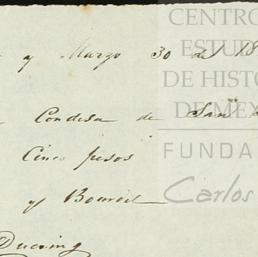 y Marzo 30 del 18
Condesa de San
Cinco pesos
y Bourel
Ducoing
CENTRO
ESTU
DE HISTO
DE MÉX
FUNDA
Carlos